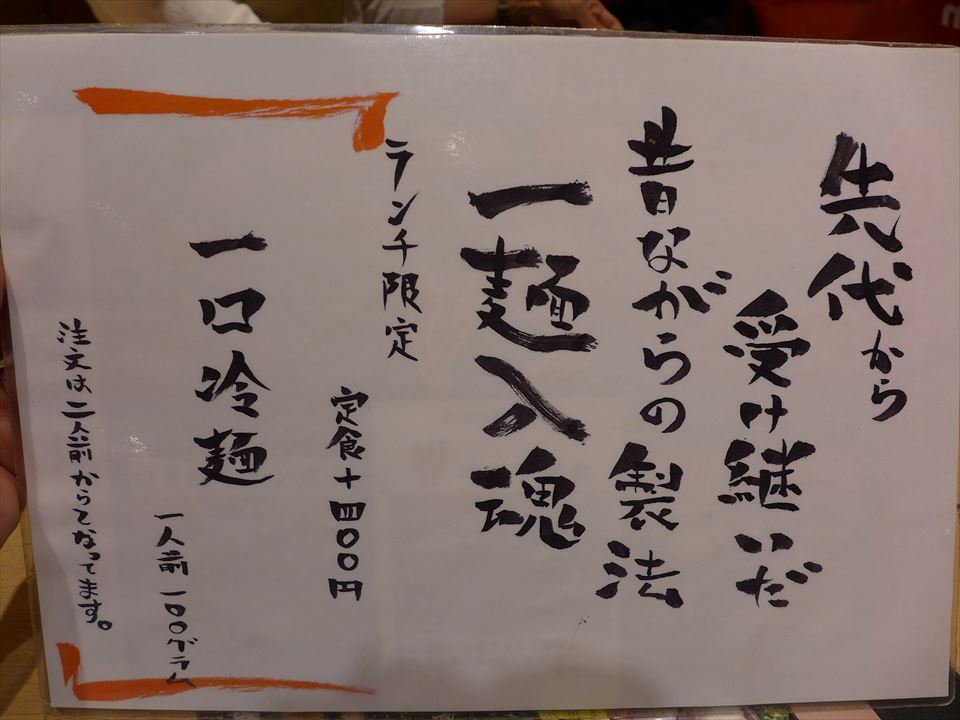 先代から
受け継いだ
昔ながらの製法
一麺入魂
ランチ限定
定食+四〇〇円
一口冷麺
一人前一〇〇グラム
注文は二人前からてなってます。